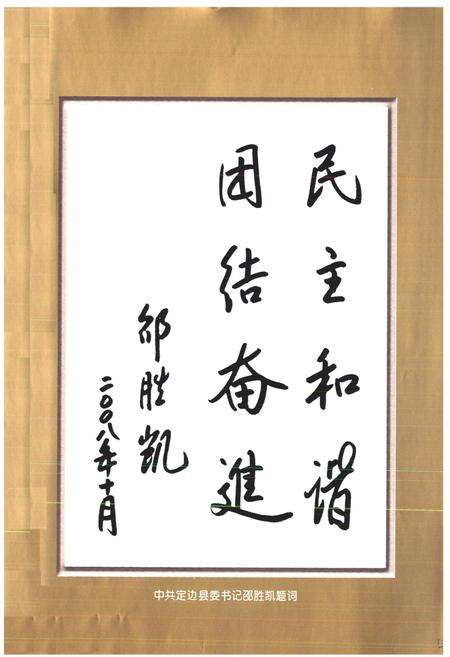 民主和谐
团结奋進
邵胜凯
二〇〇八年十月
中共定边县委书记邵胜凯题词